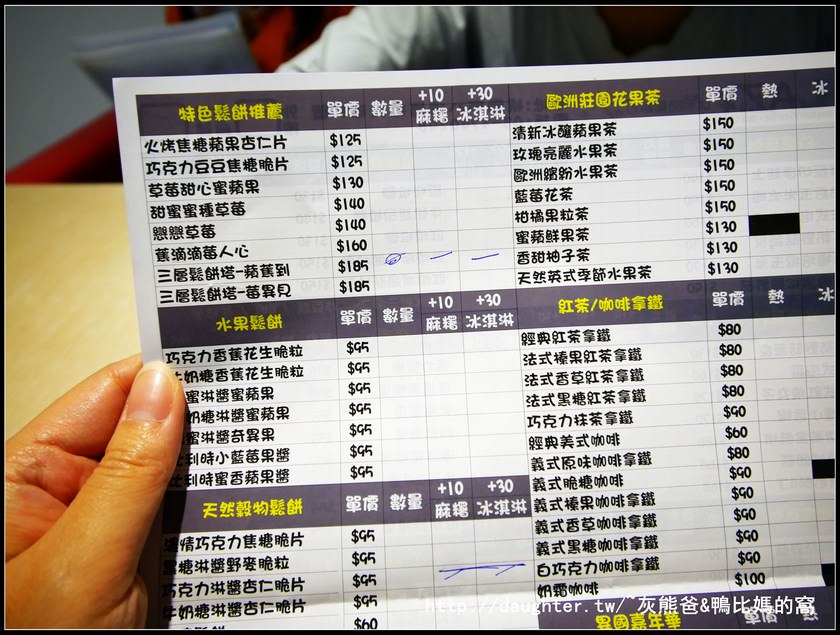 特色鬆餅推薦 單價 數量 +10 麻糬 +30 冰淇淋
火烤焦糖蘋果杏仁片 $125
巧克力豆豆焦糖脆片 $125
草莓甜心蜜蘋果 $130
甜蜜蜜種草莓 $140
戀戀草莓 $140
蕉滴滴莓人心 $160
三層鬆餅塔-蘋蕉到 $185
三層鬆餅塔-莓異見 $185
水果鬆餅 單價 數量 +10 麻糬 +30 冰淇淋
巧克力香蕉花生脆粒 $95
牛奶糖香蕉花生脆粒 $95
蜜淋醬蜜蘋果 $95
奶糖淋醬蜜蘋果 $95
蜜淋醬奇異果 $95
比利時小藍莓果醬 $95
比利時蜜香蘋果醬 $95
天然穀物鬆餅 單價 數量 +10 麻糬 +30 冰淇淋
情巧克力焦糖脆片 $95
黑糖淋醬野麥脆粒 $95
巧克力淋醬杏仁脆片 $95
牛奶糖淋醬杏仁脆片 $95
鬆餅 $60
歐洲莊園花果茶 單價 熱 冰
清新冰釀蘋果茶 $150
玫瑰亮麗水果茶 $150
歐洲繽紛水果茶 $150
藍莓花茶 $150
柑橘果粒茶 $150
蜜蘋鮮果茶 $130
香甜柚子茶 $130
天然英式季節水果茶 $130
紅茶/咖啡拿鐵 單價 熱 冰
經典紅茶拿鐵 $80
法式榛果紅茶拿鐵 $80
法式香草紅茶拿鐵 $80
法式黑糖紅茶拿鐵 $80
巧克力抹茶拿鐵 $90
經典美式咖啡 $60
義式原味咖啡拿鐵 $80
義式脆糖咖啡 $90
義式榛果咖啡拿鐵 $90
義式香草咖啡拿鐵 $90
義式黑糖咖啡拿鐵 $90
白巧克力咖啡拿鐵 $90
奶霜咖啡 $100
異國嘉年華 單價 熱
http://daughter.tw/~灰熊爸&鴨比媽的窩